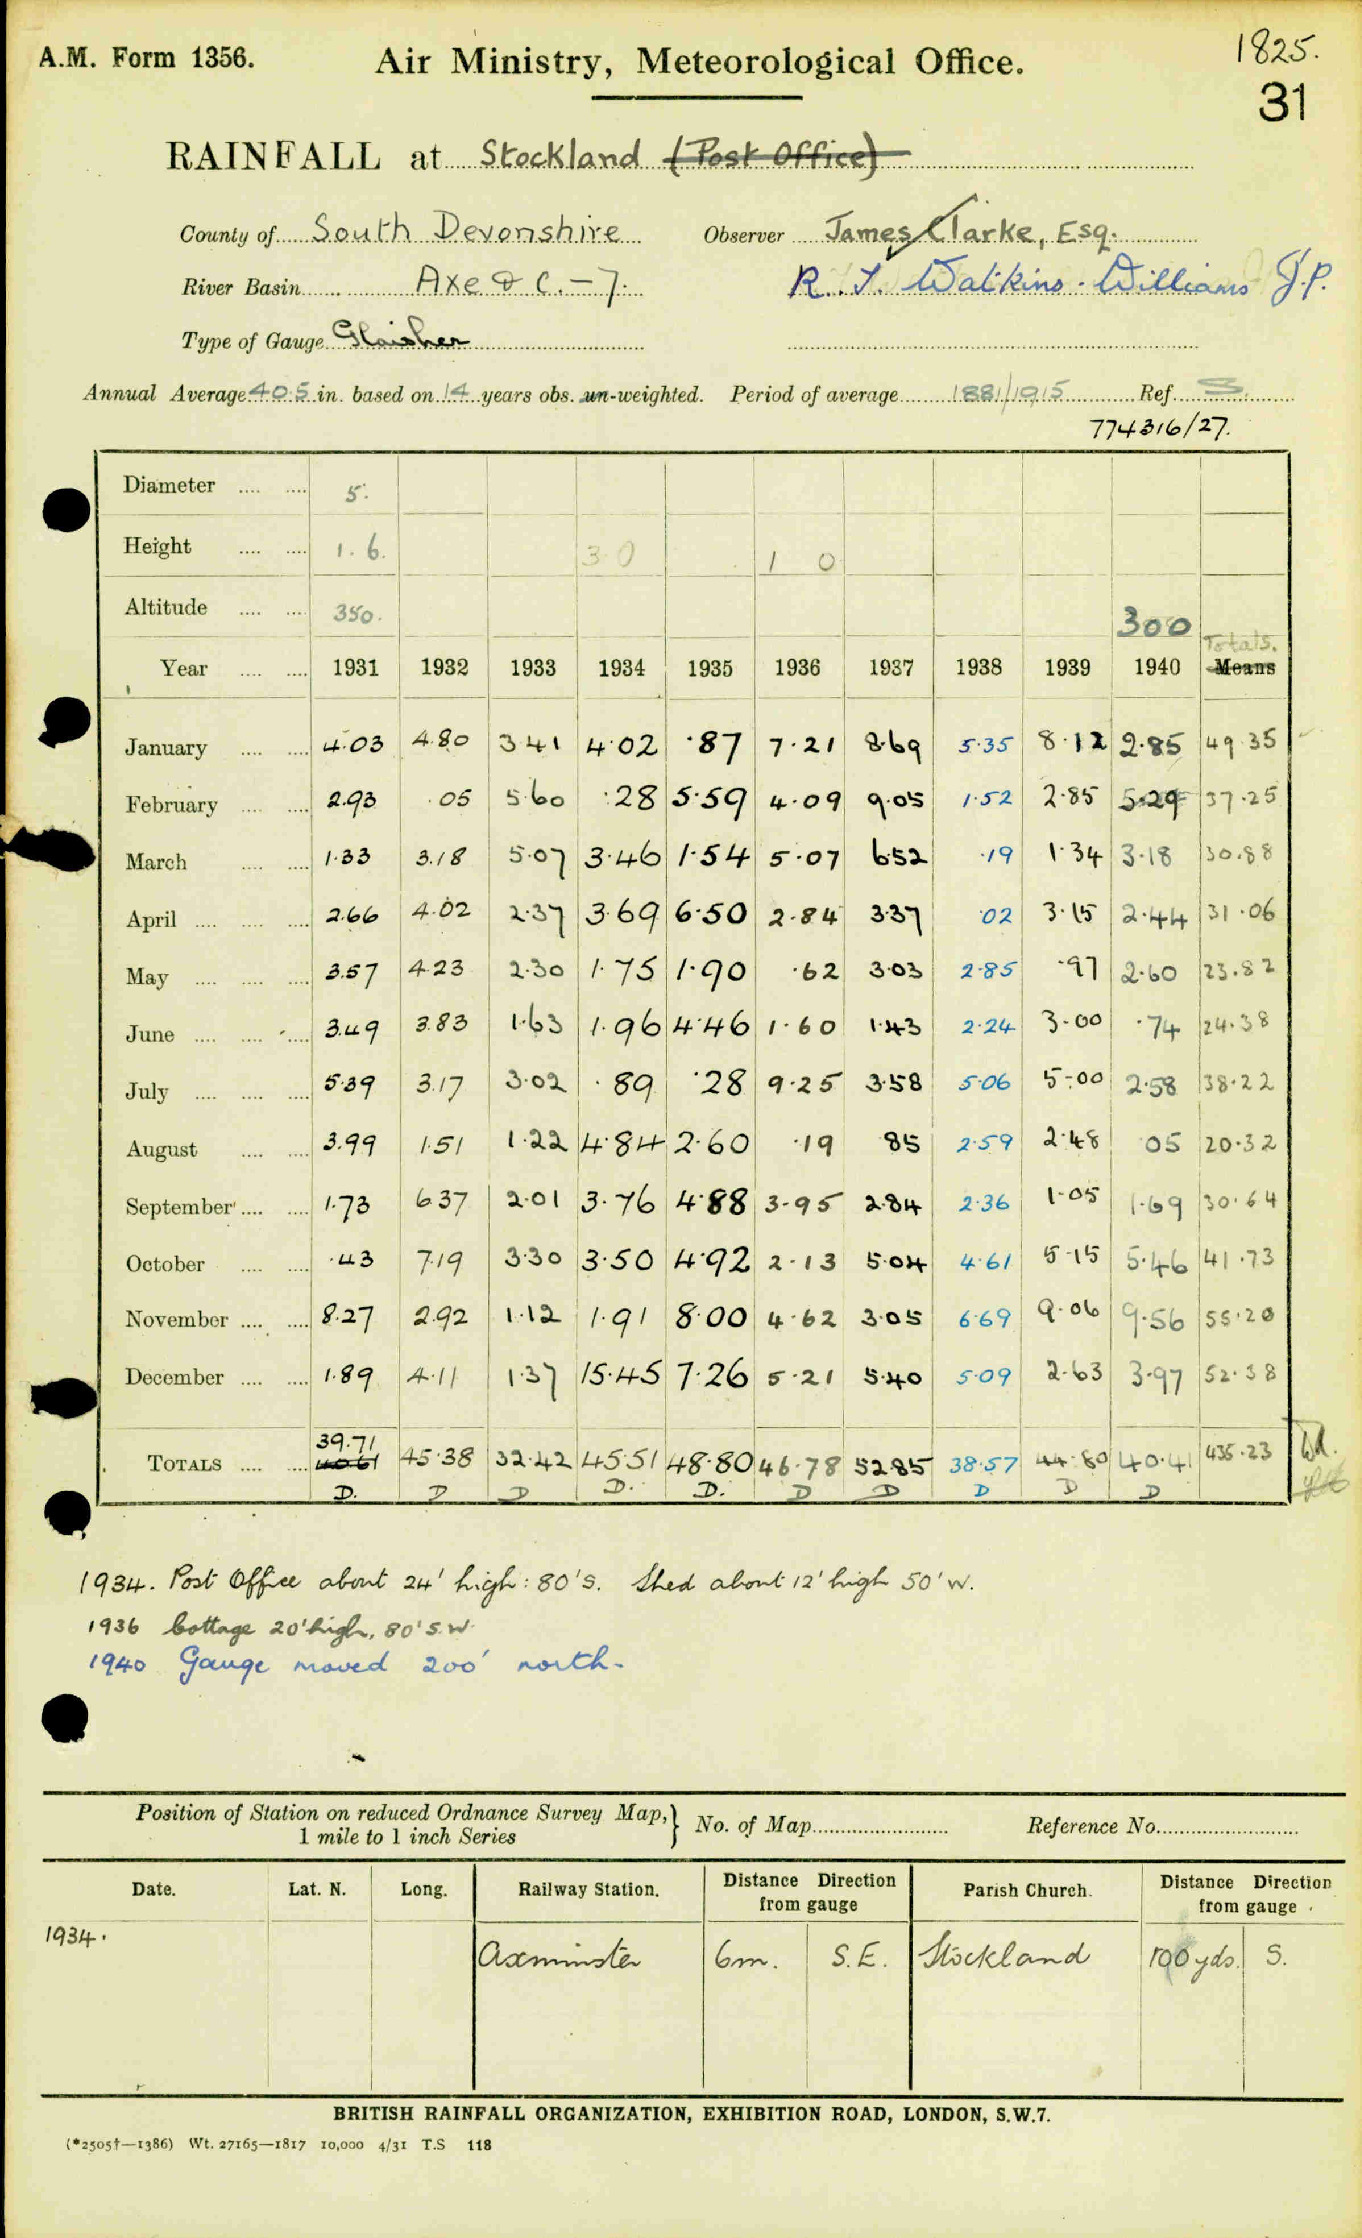 A.M. Form 1356.
Air Ministry, Meteorological Office.
1825.
31
RAINFALL at Stockland (Post Office)
County of South Devonshire Observer James Clarke, Esq.
River Basin Axe & C. - 7. R. T. Watkins-Williams J.P.
Type of Gauge Glaisher
Annual Average 40.5 in. based on 14 years obs. un-weighted. Period of average 1881/1915 Ref. S
774316/27.
Diameter 5.
Height 1. 6. 3 0 1 0
Altitude 350. 300
Totals.
Year 1931 1932 1933 1934 1935 1936 1937 1938 1939 1940 Means
January 4.03 4.80 3.41 4.02 .87 7.21 8.69 5.35 8.12 2.85 49.35
February 2.93 .05 5.60 .28 5.59 4.09 9.05 1.52 2.85 5.29 37.25
March 1.33 3.18 5.07 3.46 1.54 5.07 6.52 .19 1.34 3.18 30.88
April 2.66 4.02 2.37 3.69 6.50 2.84 3.37 .02 3.15 2.44 31.06
May 3.57 4.23 2.30 1.75 1.90 .62 3.03 2.85 .97 2.60 23.82
June 3.49 3.83 1.63 1.96 4.46 1.60 1.43 2.24 3.00 .74 24.38
July 5.39 3.17 3.02 .89 .28 9.25 3.58 5.06 5.00 2.58 38.22
August 3.99 1.51 1.22 4.84 2.60 .19 85 2.59 2.48 05 20.32
September 1.73 6.37 2.01 3.76 4.88 3.95 2.84 2.36 1.05 1.69 30.64
October .43 7.19 3.30 3.50 4.92 2.13 5.04 4.61 5.15 5.46 41.73
November 8.27 2.92 1.12 1.91 8.00 4.62 3.05 6.69 9.06 9.56 55.20
December 1.89 4.11 1.37 15.45 7.26 5.21 5.40 5.09 2.63 3.97 52.38
39.71
TOTALS 40.61 45.38 32.42 45.51 48.80 46.78 52.85 38.57 44.80 40.41 435.23
D. D D D. D. D D D D D
1934. Post Office about 24' high: 80' S. Shed about 12' high 50' W.
1936 Cottage 20' high, 80' S.W.
1940 Gauge moved 200' north.
Position of Station on reduced Ordnance Survey Map,
1 mile to 1 inch Series
No. of Map Reference No.
Date. Lat. N. Long. Railway Station. Distance Direction from gauge Parish Church. Distance Direction from gauge
1934. Axminster 6m. S.E. Stockland 100 yds. S.
BRITISH RAINFALL ORGANIZATION, EXHIBITION ROAD, LONDON, S.W.7.
(*2505†—1386) Wt. 27165—1817 10,000 4/31 T.S 118